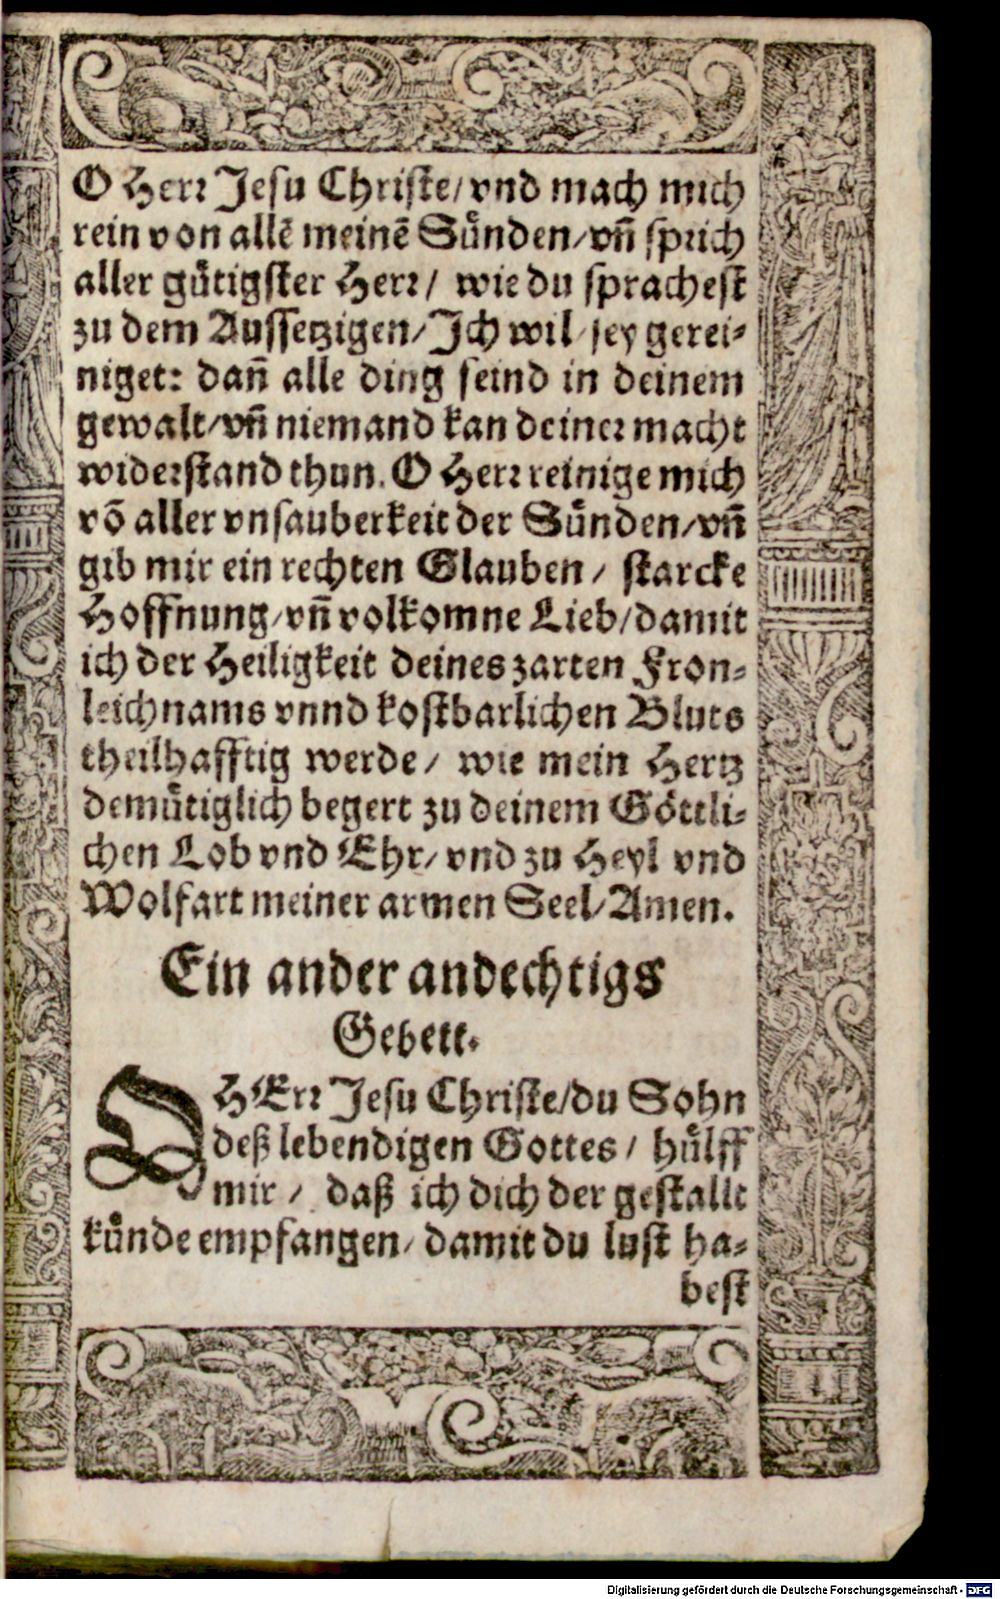 O Herr Jesu Christe/ vnd mach mich
rein von allē meinē Sünden/ vn̄ sprich
aller gütigster Herr/ wie du sprachest
zu dem Aussetzigen/ Jch wil/ sey gerei-
niget: dan̄ alle ding seind in deinem
gewalt/ vn̄ niemand kan deiner macht
widerstand thun. O Herr reinige mich
vō aller vnsauberkeit der Sünden/ vn̄
gib mir ein rechten Glauben/ starcke
Hoffnung/ vn̄ volkomne Lieb/ damit
ich der Heiligkeit deines zarten Fron-
leichnams vnnd kostbarlichen Bluts
theilhafftig werde/ wie mein Hertz
demütiglich begert zu deinem Göttli-
chen Lob vnd Ehr/ vnd zu Heyl vnd
Wolfart meiner armen Seel/ Amen.
Ein ander andechtigs
Gebett.
O HErr Jesu Christe/ du Sohn
deß lebendigen Gottes/ hülff
mir/ daß ich dich der gestallt
künde empfangen/ damit du lust ha-
best
Digitalisierung gefördert durch die Deutsche Forschungsgemeinschaft - DFG